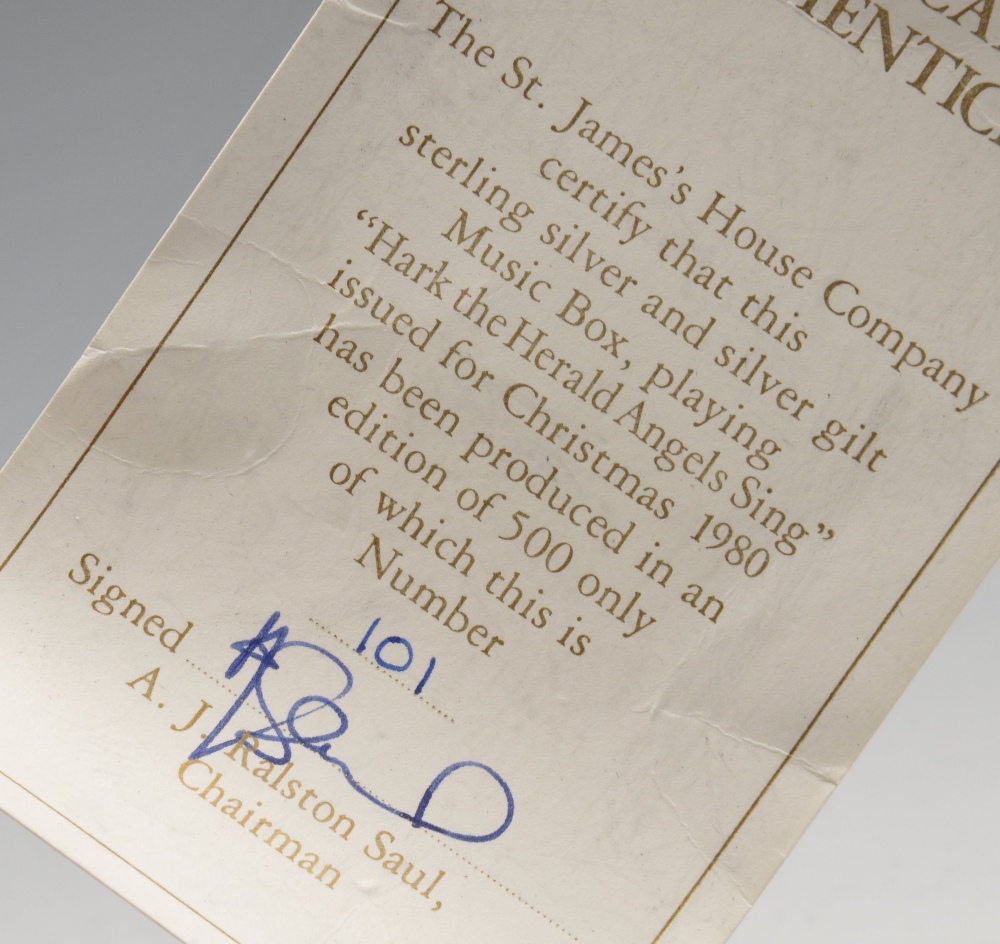 The St. James's House Company
certify that this
sterling silver and silver gilt
Music Box, playing
“Hark the Herald Angels Sing”
issued for Christmas 1980
has been produced in an
edition of 500 only
of which this is
Number
101
Signed
A. J. Ralston Saul,
Chairman